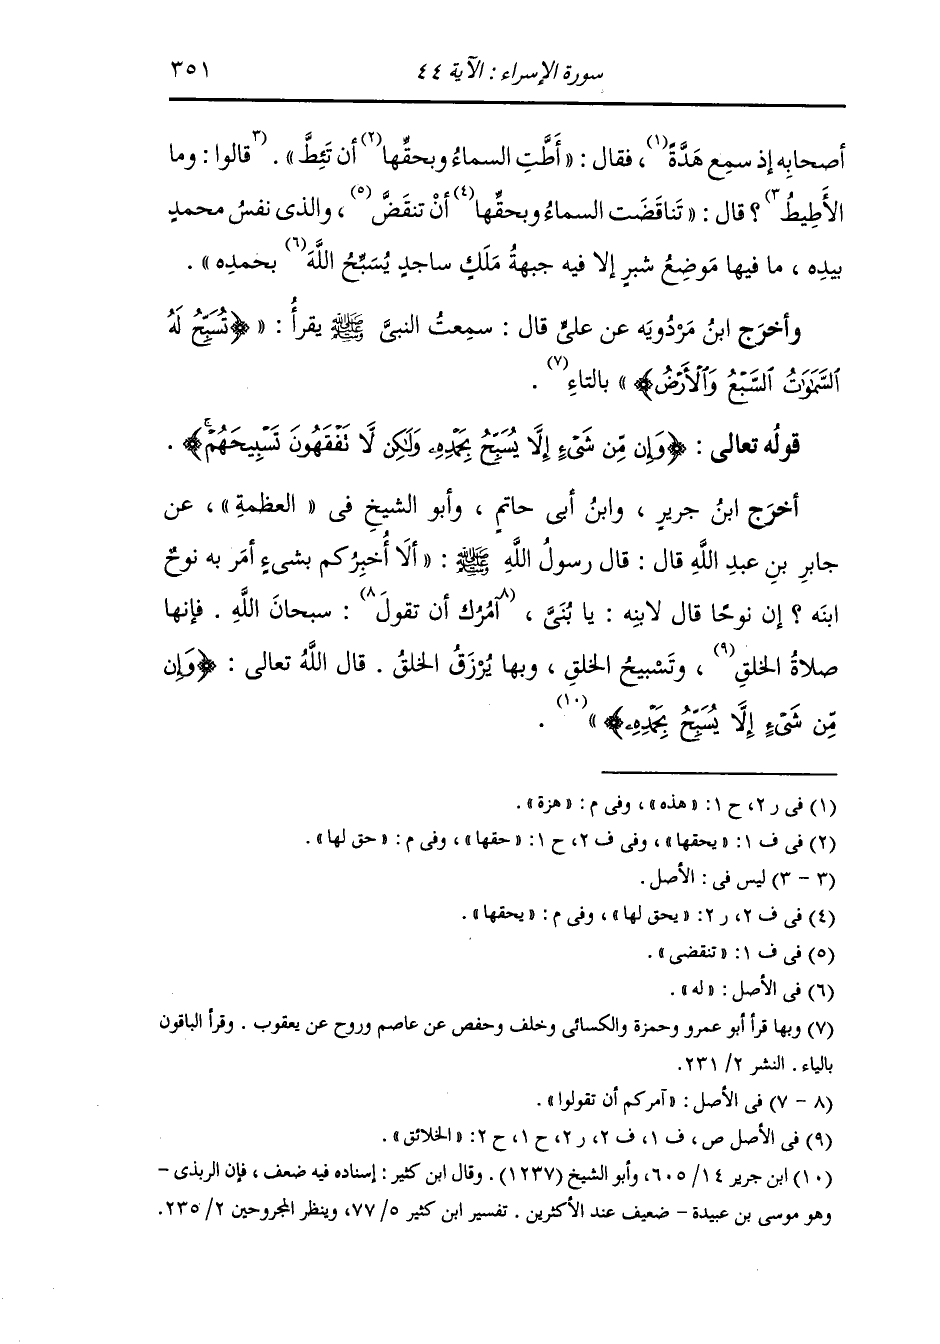 سورة الإسراء : الآية ٤٤ ٣٥١
أصحابِه إذ سمِع هَدَّةً(١) ، فقال : « أَطَّتِ السماءُ وبحقِّها(٢) أن تَئِطَّ » . (٣قالوا : وما
الأَطِيطُ٣) ؟ قال : « تَناقَضَت السماءُ وبحقِّها(٤) أنْ تنقَضَّ(٥) ، والذى نفسُ محمدٍ
بيدِه ، ما فيها مَوضِعُ شبرٍ إلا فيه جبهةُ مَلَكٍ ساجدٍ يُسَبِّحُ اللَّهَ(٦) بحَمدِه » .
وأخرَج ابنُ مَرْدُويَه عن علىٍّ قال : سمِعتُ النبىَّ ﷺ يقرأُ : « ﴿تُسَبِّحُ لَهُ
ٱلسَّمَٰوَٰتُ ٱلسَّبْعُ وَٱلْأَرْضُ﴾ » بالتاءِ(٧) .
قولُه تعالى : ﴿وَإِن مِّن شَىْءٍ إِلَّا يُسَبِّحُ بِحَمْدِهِۦ وَلَٰكِن لَّا تَفْقَهُونَ تَسْبِيحَهُمْۚ﴾ .
أخرَج ابنُ جريرٍ ، وابنُ أبى حاتمٍ ، وأبو الشيخِ فى « العظمةِ » ، عن
جابرِ بنِ عبدِ اللَّهِ قال : قال رسولُ اللَّهِ ﷺ : « ألَا أُخبِرُكم بشىءٍ أمَر به نوحٌ
ابنَه ؟ إن نوحًا قال لابنِه : يا بُنَىَّ ، (٨آمُرُك أن تقولَ٨) : سبحانَ اللَّهِ . فإنها
صلاةُ الخلقِ(٩) ، وتَسْبيحُ الخلقِ ، وبها يُرْزَقُ الخلقُ . قال اللَّهُ تعالى : ﴿وَإِن
مِّن شَىْءٍ إِلَّا يُسَبِّحُ بِحَمْدِهِۦ﴾ »(١٠) .
(١) فى ر ٢، ح ١: «هذه» ، وفى م : «هزة» .
(٢) فى ف ١: «يحقها» ، وفى ف ٢، ح ١: «حقها» ، وفى م : «حق لها» .
(٣ - ٣) ليس فى : الأصل .
(٤) فى ف ٢، ر ٢: «يحق لها» ، وفى م : «يحقها» .
(٥) فى ف ١: «تنقضى» .
(٦) فى الأصل : «له» .
(٧) وبها قرأ أبو عمرو وحمزة والكسائى وخلف وحفص عن عاصم وروح عن يعقوب . وقرأ الباقون
بالياء . النشر ٢/ ٢٣١.
(٨ - ٧) فى الأصل : «آمركم أن تقولوا» .
(٩) فى الأصل ص ، ف ١، ف ٢، ر ٢، ح ١، ح ٢: «الخلائق» .
(١٠) ابن جرير ١٤/ ٦٠٥، وأبو الشيخ (١٢٣٧) . وقال ابن كثير : إسناده فيه ضعف ، فإن الربذى -
وهو موسى بن عبيدة - ضعيف عند الأكثرين . تفسير ابن كثير ٥/ ٧٧، وينظر المجروحين ٢/ ٢٣٥.